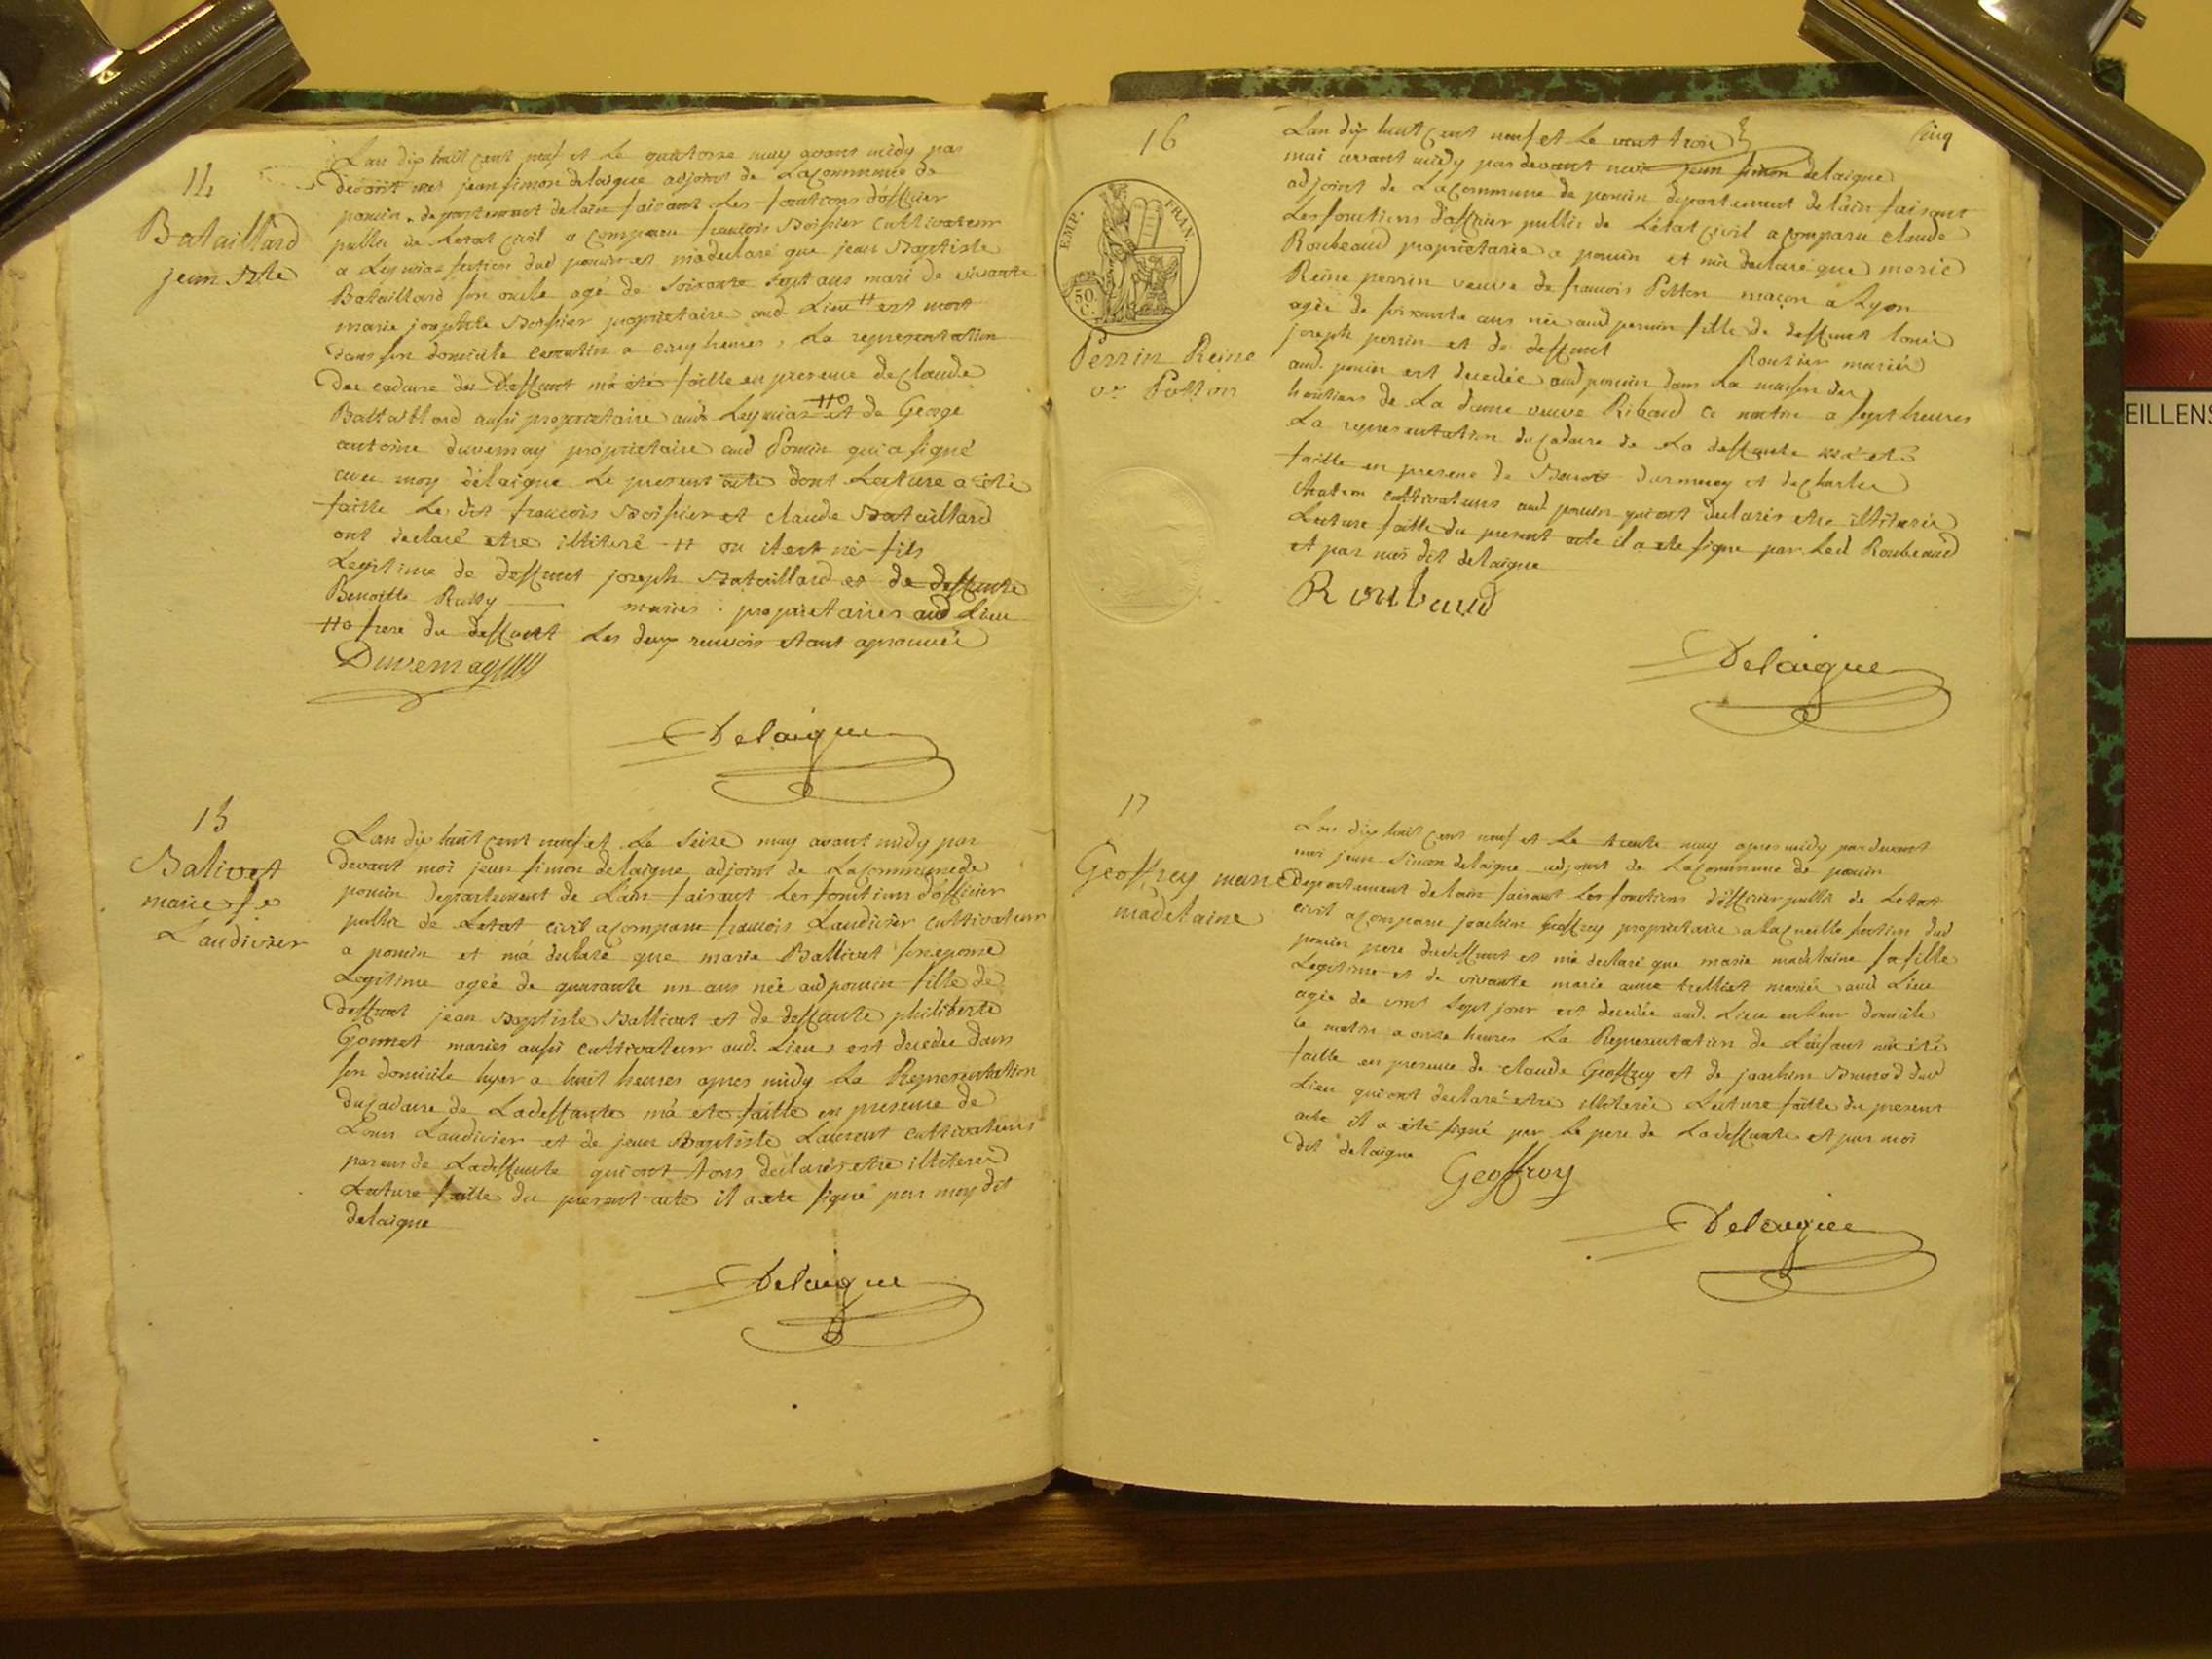 14
Bataillard
jean Bte
Lan dix huit cent neuf et le quatorze may avant midy par
devant moi jean simon delaigue adjoint de La commune de
poncin departement de lain faisant Les fonctions d'officier
public de Letat Civil a comparu francois Boissier cultivateur
a Leymiaz section dud poncin et m'a declaré que jean Baptiste
Bataillard son oncle agé de soixante sept ans mari de vivante
marie josephte Boissier proprietaire aud. Lieu # est mort
dans son domicile ce matin a cinq heures, La representation
du cadavre du deffunt m'a été faitte en presence de claude
Bataillard aussi proprietaire aud. Leymiaz #o et de George
antoine duvernay proprietaire aud Poncin qui a signé
avec moy delaigue Le present acte dont Lecture a été
faitte Les dits francois Boissier et claude Bataillard
ont declaré etre illitéré # ou il est né fils
Legitime de deffunt joseph Bataillard et de deffunte
Benoitte mariés proprietaires aud Lieu
#o frere du deffunt Les deux renvois etant aprouvés
Duvernay
Delaigue
15
Balivet
marie fe
Laudivier
Lan dix huit cent neuf et Le seize may avant midy par
devant moi jean simon delaigue adjoint de La commune de
poncin departement de Lain faisant Les fonctions d'officier
public de Letat civil a comparu francois Laudivier cultivateur
a poncin et m'a declaré que marie Ballivet son epouse
Legitime agée de quarante un ans née aud poncin fille de
deffunt jean Baptiste Ballivet et de deffunte philiberte
Gonnet mariés aussi cultivateurs aud. Lieu, est decedée dans
son domicile hyer a huit heures apres midy La Representation
du cadavre de La deffunte m'a ete faitte en presence de
Louis Laudivier et de jean Baptiste Laurent cultivateurs
parens de La deffunte qui ont tous declarés etre illiterés
Lecture faitte du present acte il a ete signé par moy dit
delaigue
Delaigue
16
cinq
EMP. FRAN.
50 C.
Perrin Reine
ve Potton
Lan dix huit cent neuf et Le vint trois
mai avant midy par devant moi jean simon delaigue
adjoint de La commune de poncin departement de l'ain faisant
Les fonctions d'officier public de L'etat civil a comparu claude
Roubeaud proprietaire a poncin et m'a declaré que marie
Reine perrin veuve de francois Potton maçon a Lyon
agée de soixante ans née aud poncin fille de deffunt louis
joseph perrin et de deffunt Routier mariés
aud. poncin est decedée aud poncin dans La maison des
heritiers de La dame veuve Ribaud ce matin a sept heures
La representation du cadavre de La deffunte m'a eté
faitte en presence de Benoit et de charles
chatron cultivateurs aud poncin qui ont declarés etre illiterés
Lecture faitte du present acte il a ete signé par Led Roubeaud
et par moi dit delaigue
Roubaud
Delaigue
17
Geoffrey marie
madelaine
Lan dix huit cent neuf et Le trente may apres midy par devant
moi jean simon delaigue adjoint de La commune de poncin
departement de lain faisant Les fonctions d'officier public de Letat
civil a comparu joachim Geoffrey proprietaire a La cueille section dud
poncin pere du deffunt et m'a declaré que marie madelaine sa fille
Legitime et de vivante marie anne trelliet mariés aud Lieu
agée de vint sept jour est decedée aud. Lieu en leur domicile
ce matin a onze heures La Representation de L'enfant m'a été
faitte en presence de claude Geoffrey et de joachim Brunod dud
Lieu qui ont declaré etre illiterés Lecture faitte du present
acte il a été signé par Le pere de La deffunte et par moi
dit delaigue
Geoffroy
Delaigue
EILLENS